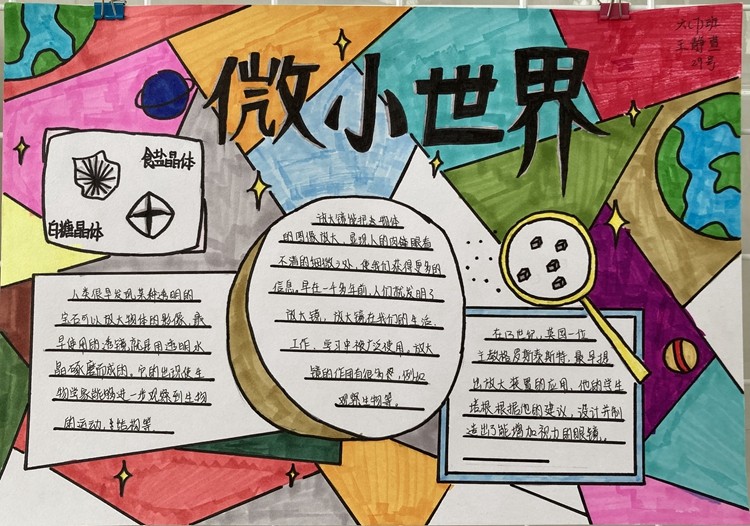 微小世界
六(1)班
王静萱
21号
食盐晶体
白糖晶体
人类很早发现某种透明的
宝石可以放大物体的影像,最
早使用的透镜就是用透明水
晶琢磨而成的,它的出现使生
物学家能够进一步观察到生物
的运动、结构等。
放大镜能把物体
的图像放大,显现人的肉眼看
不清的细微之处,使我们获得更多的
信息。早在一千多年前,人们就发明了
放大镜,放大镜在我们的生活、
工作、学习中被广泛使用,放大
镜的作用有很多, 例如
观察生物等。
在13世纪,英国一位
主教格罗斯泰斯特,最早提
出放大装置的应用,他的学生
培根根据他的建议,设计并制
造出了能增加视力的眼镜。